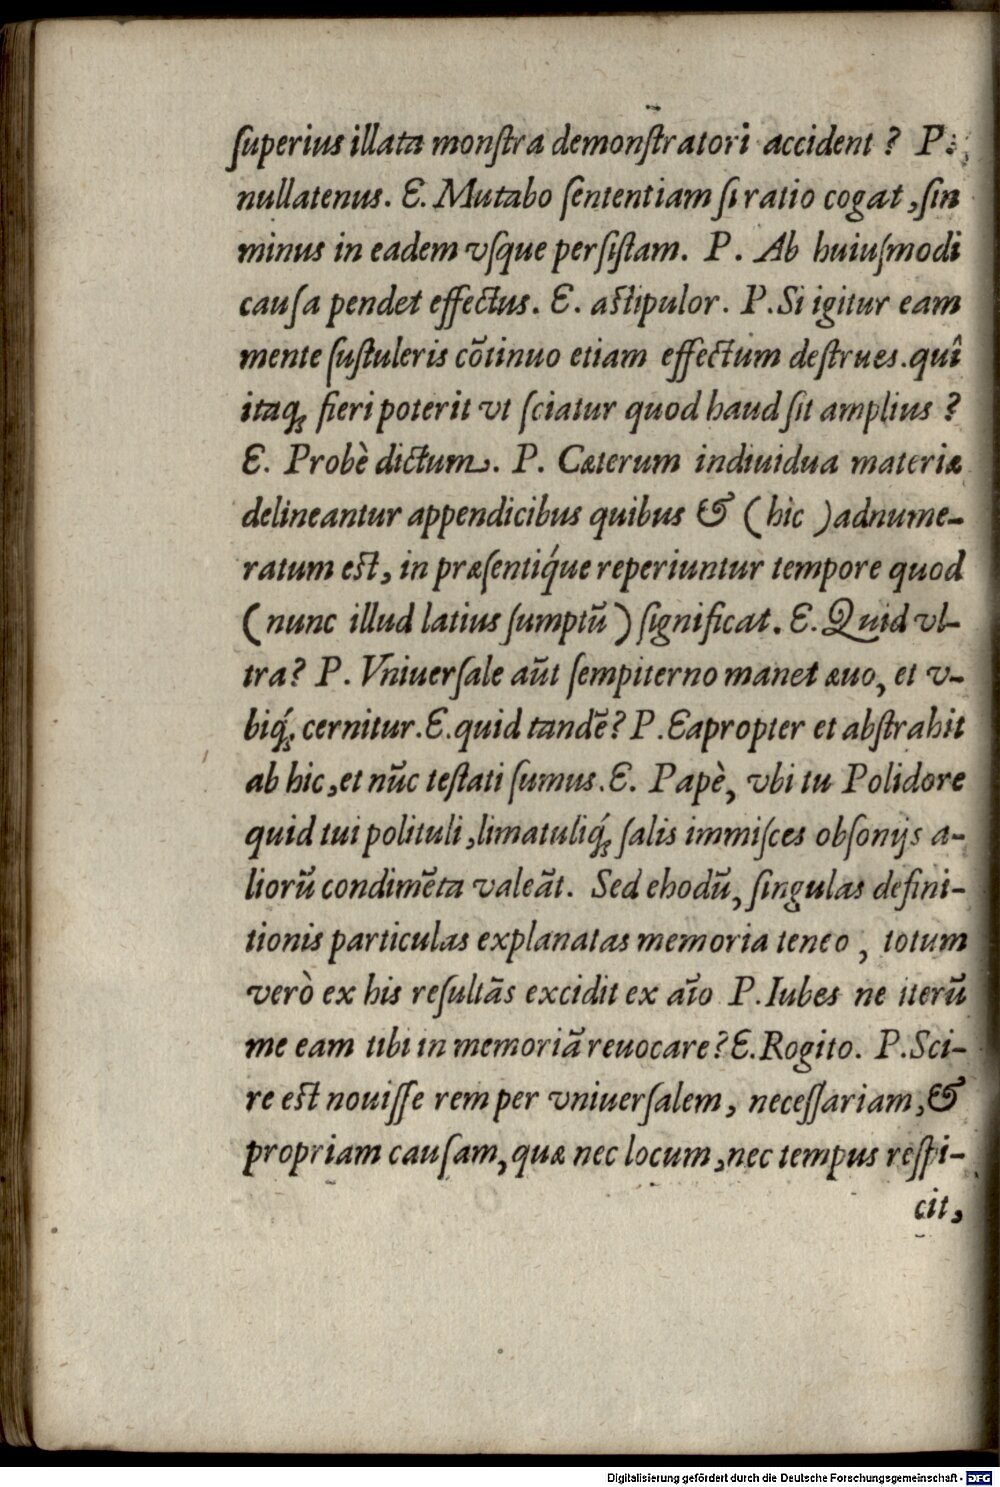 ſuperius illata monſtra demonſtratori accident ? P.
nullatenus. E. Mutabo ſententiam ſi ratio cogat, ſin
minus in eadem vſque perſiſtam. P. Ab huiuſmodi
cauſa pendet effectus. E. aſtipulor. P. Si igitur eam
mente ſuſtuleris cõtinuo etiam effectum deſtrues. quî
itaqꝫ fieri poterit vt ſciatur quod haud ſit amplius ?
E. Probè dictum. P. Cæterum indiuidua materiæ
delineantur appendicibus quibus & ( hic ) adnume-
ratum eſt, in præſentiq́ue reperiuntur tempore quod
( nunc illud latius ſumptũ ) ſignificat. E. Quid vl-
tra? P. Vniuerſale aũt ſempiterno manet æuo, et v-
biq́ꝫ cernitur. E. quid tandẽ? P. Eapropter et abſtrahit
ab hic, et nũc teſtati ſumus. E. Papè, vbi tu Polidore
quid tui polituli, limatuliq́ꝫ ſalis immiſces obſonijs a-
liorũ condimẽta valeãt. Sed ehodũ, ſingulas defini-
tionis particulas explanatas memoria teneo , totum
verò ex his reſultãs excidit ex aĩo P. Iubes ne iterũ
me eam tibi in memoriã reuocare? E. Rogito. P. Sci-
re eſt nouiſſe rem per vniuerſalem, neceſſariam, &
propriam cauſam, quæ nec locum, nec tempus reſpi-
cit,
Digitalisierung gefördert durch die Deutsche Forschungsgemeinschaft - DFG